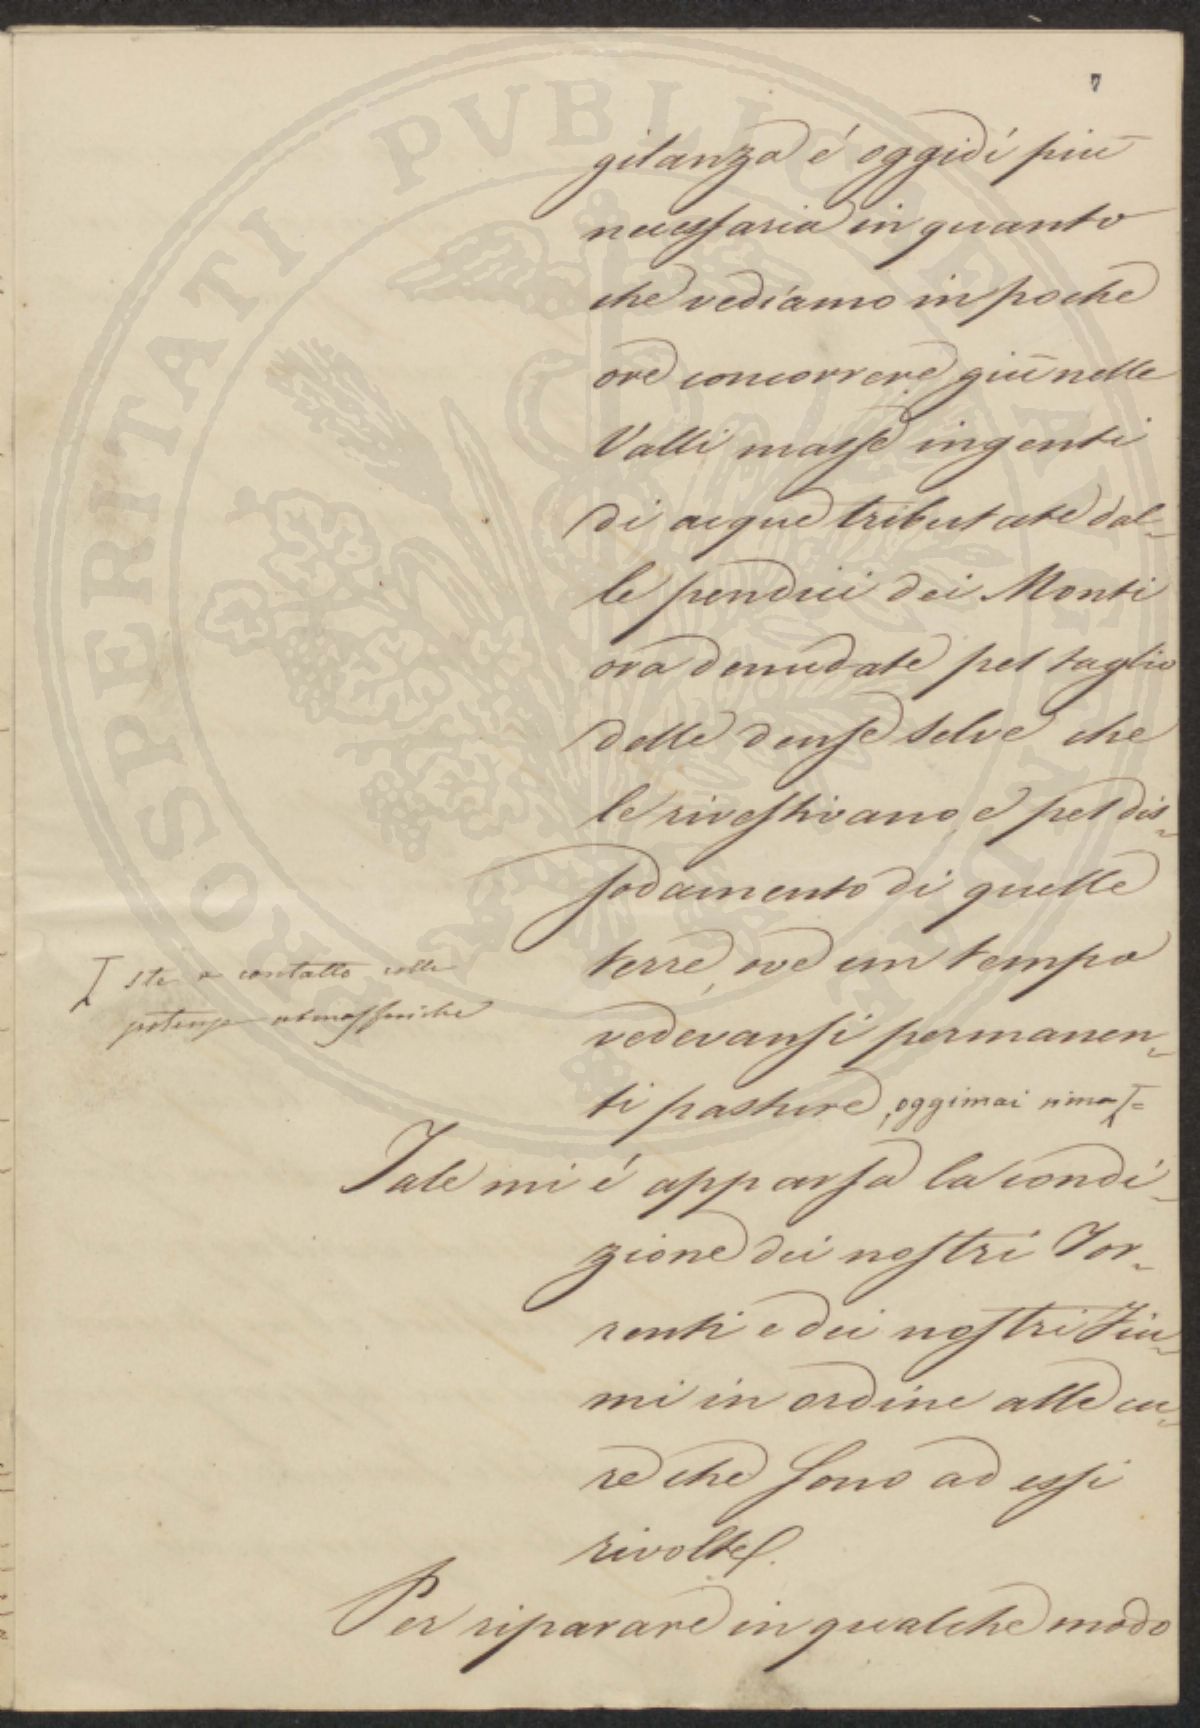 7
gilanza é oggidí più
necessaria in quanto
che vediamo in poche
ore concorrere giù nelle
Valli masse ingenti
di acque tributate dal-
le pendici dei Monti
ora denudate pel taglio
delle dense selve che
le rivestivano, e pel dis-
sodamento di quelle
terre, ove un tempo
vedevansi permanen-
ti pasture, oggimai rima=
ste a contatto colle
potenze atmosferiche
Tale mi é apparsa la condi-
zione dei nostri Tor-
renti e dei nostri Fiu-
mi in ordine alle cu-
re che sono ad essi
rivolte.
Per riparare in qualche modo
PROSPERITATI PVBLICAE